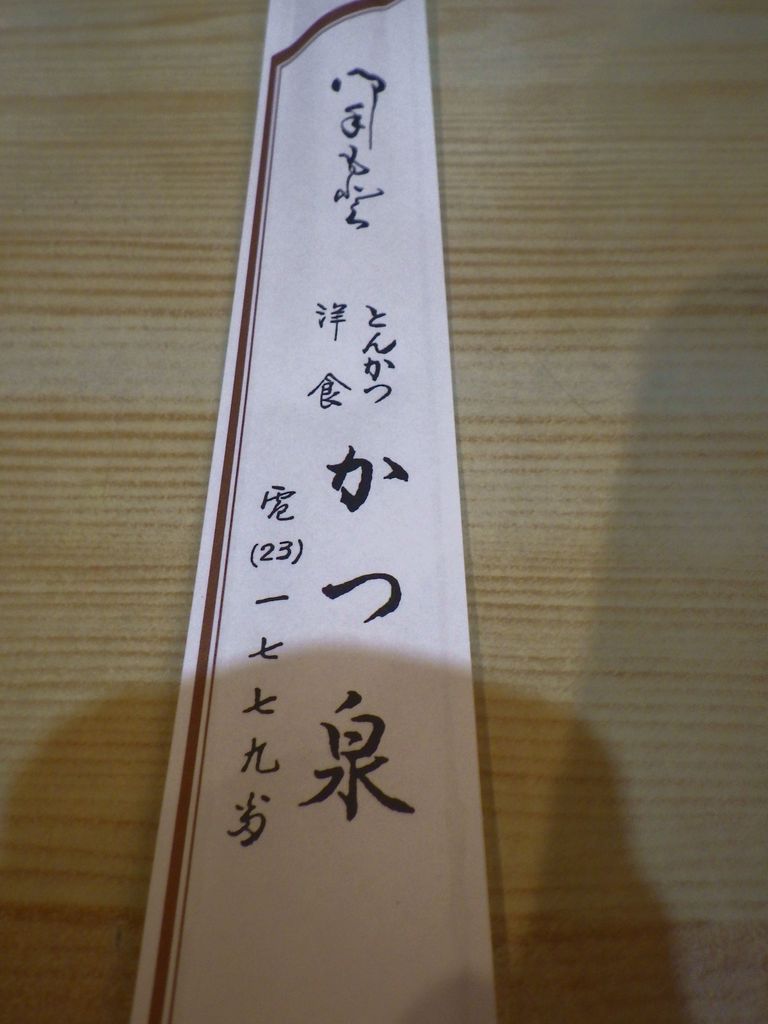 御手もと
とんかつ
洋食
かつ泉
電(23)一七七九番